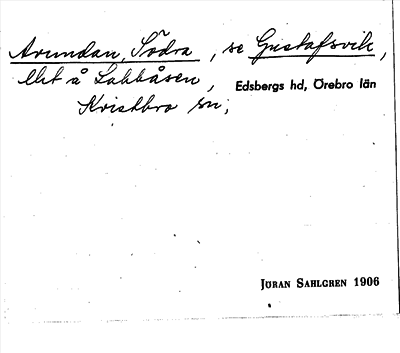 Avundan, Södra, se Gustafsvik,
lht å Lakkåsen, Edsbergs hd, Örebro län
Kvistbro sn;
JÖRAN SAHLGREN 1906